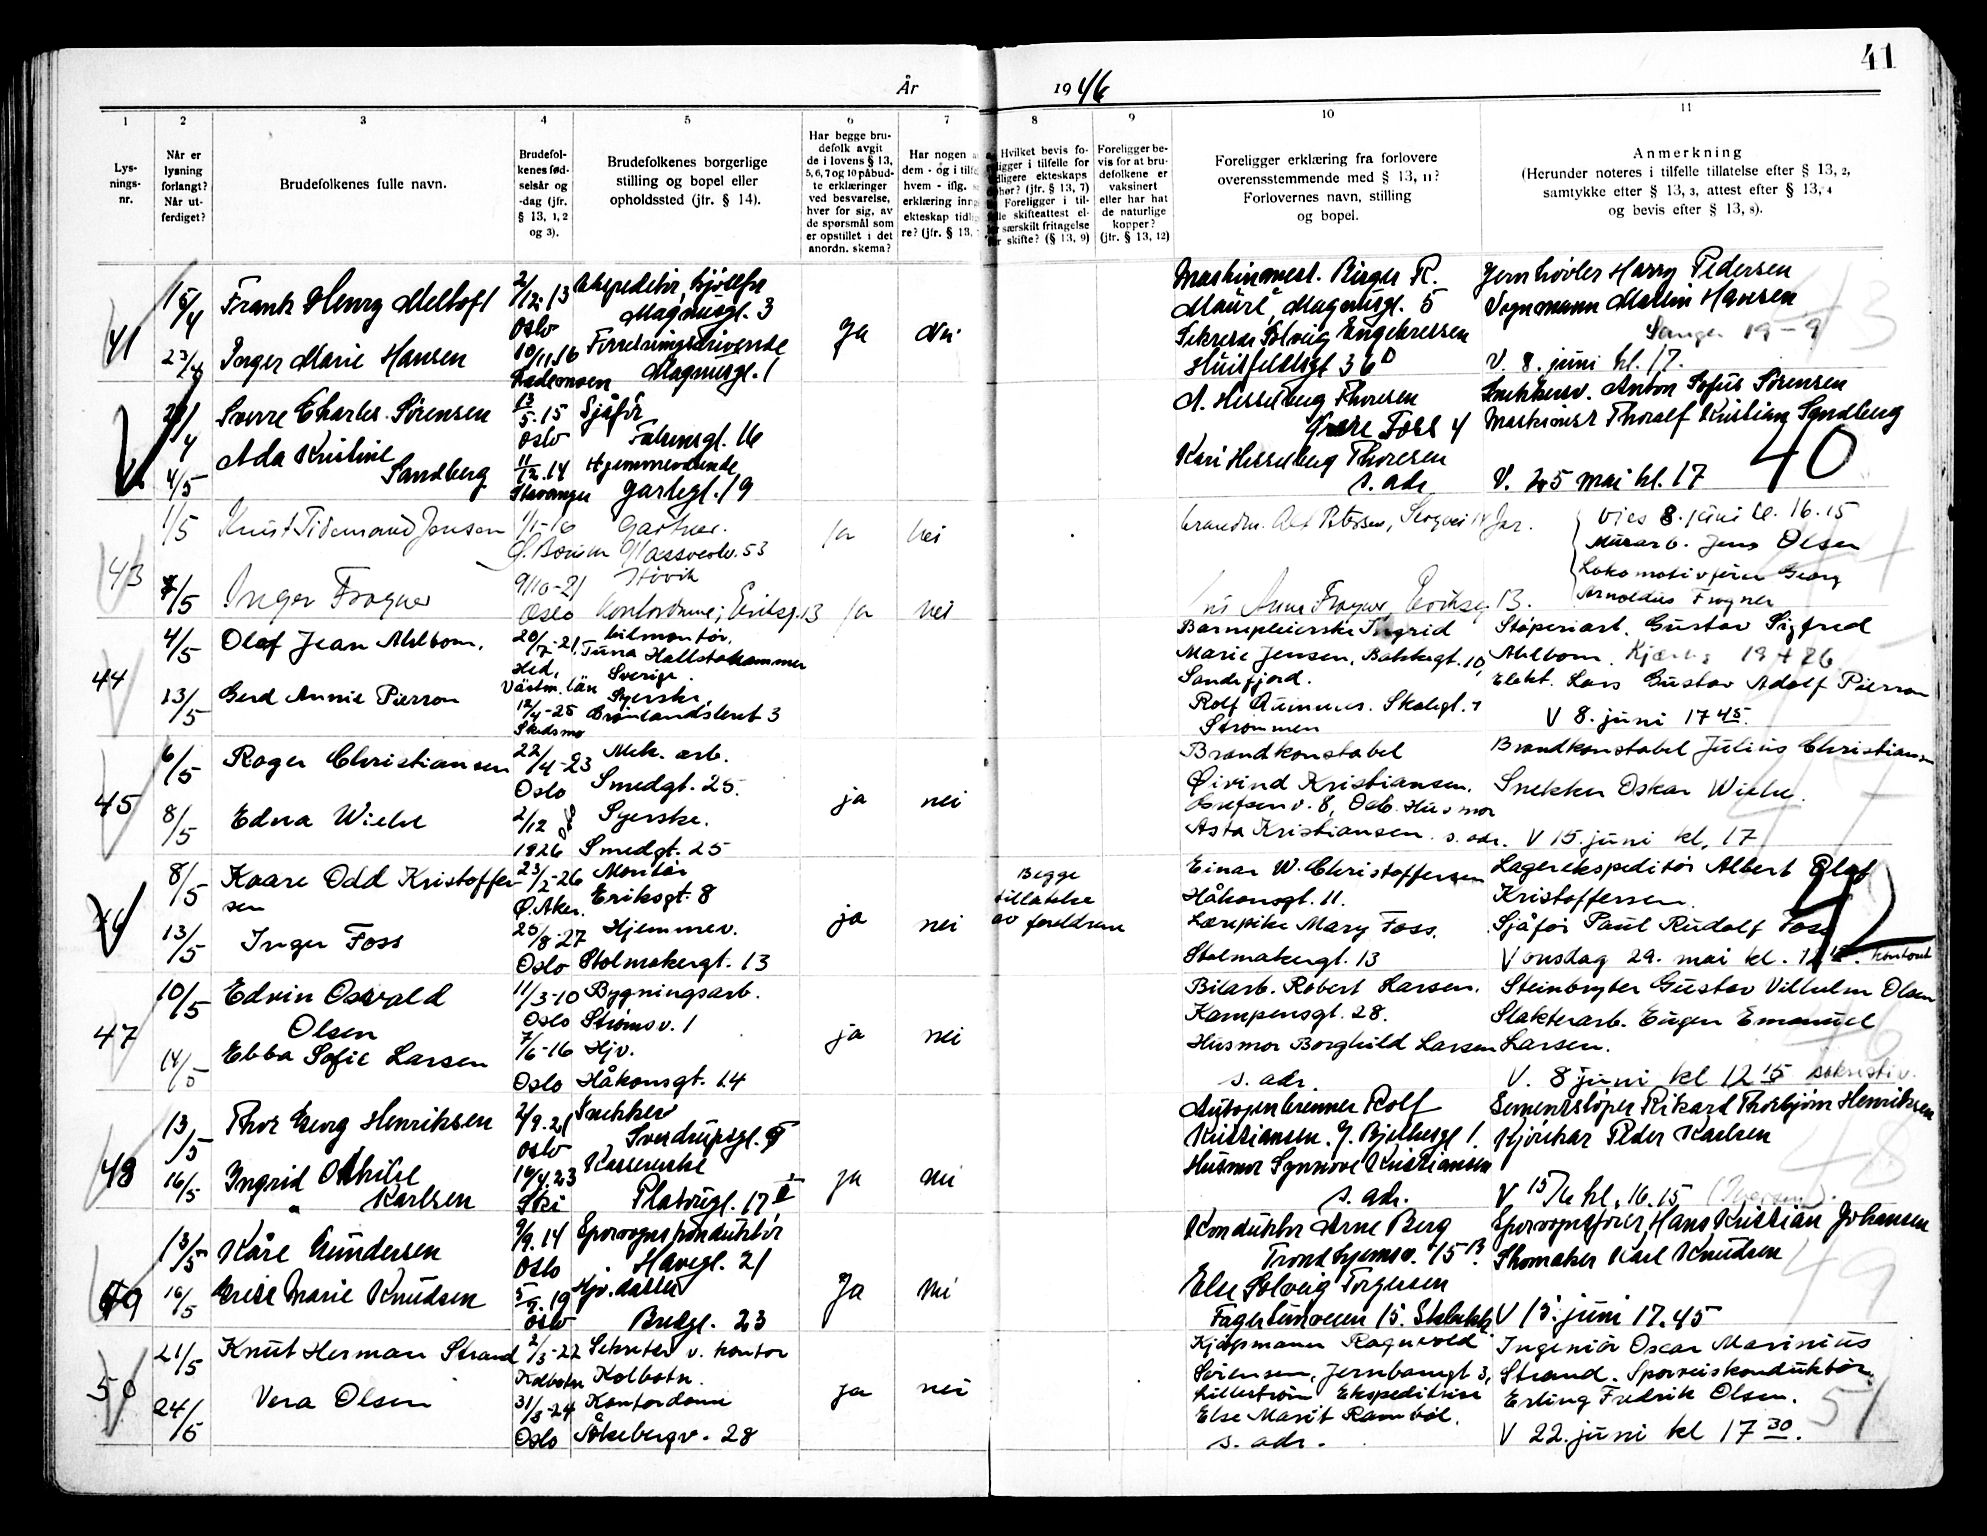 41
År 1946
1 2 3 4 5 6 7 8 9 10 11
Lys-
nings-
nr.
Når er
lysning
forlangt?
Når ut-
ferdiget?
Brudefolkenes fulle navn.
Brudefol-
kenes fød-
selsår og
-dag (jfr.
§ 13, 1, 2
og 3).
Brudefolkenes borgerlige
stilling og bopel eller
opholdssted (jfr. § 14).
Har begge bru-
defolk avgit
de i lovens § 13,
5, 6, 7 og 10 påbud-
te erklæringer
ved besvarelse,
hver for sig, av
de spørsmål som
er opstillet i det
anordn. skema?
Har nogen
dem - og i tilf
hvem - iflg.
erklæring inn
ekteskap tidl
re? (jfr. § 13,
Hvilket bevis fo-
ligger i tilfelle for
dligere ekteskaps
phør? (jfr. § 13, 7)
Foreligger i til-
lle skifteattest el-
r særskilt fritagelse
r skifte? (§ 13, 9)
Foreligger be-
vis for at bru-
defolkene er
vaksinert
eller har hat
de naturlige
kopper?
(jfr. § 13, 12)
Foreligger erklæring fra forlovere
overensstemmende med § 13, 11?
Forlovernes navn, stilling
og bopel.
Anmerkning
(Herunder noteres i tilfelle tillatelse efter § 13, 2,
samtykke efter § 13, 3, attest efter § 13, 4
og bevis efter § 13, 8).
41
15/4
Frank Henry Meltoft
2/12. 13
Oslo
Magnusgt. 3
Inger Marie Hansen
10/11. 16
Forretningsdrivende
Magnusgt. 1
Ja
Nei
Maskinmest. Birger R.
Magnusgt. 5
Solveig Engebretsen
Huitfeldtsgt 36 D
Jernhøvler Harry Pedersen
Vognmann Martin Hansen
V. 8. juni kl. 17.
43
4
4/5
Sverre Charles Sørensen
13/5. 15
Oslo
Sjåfør
Falsensgt. 16
Ada Kristine
Sandberg
11/12. 14
Stavanger
Hjemmeværende
A. Hesselberg Thoresen
Foss 4
Kari Hesselberg Thoresen
s. adr.
Snekkerv. Anton Sofus Sørensen
Maskinist Thoralf Kristian Sandberg
V. 25 mai kl. 17
40
43
1/5
Knut Tidemand Jensen
1/1-16
Gartner.
53
Høvik
Ja
nei
Vies 8. juni kl. 16.15
Murarb. Jens Olsen
7/5
Inger Frogner
9/10-21
Oslo
Kontordame, Eriksgt. 13
Ja
nei
Anna Frogner, Eriksg. 13.
Lokomotivfører Georg
Arnoldus Frogner
44
4/5
Olof Jean Ahlbom.
20/7-21.
Hed,
Västm. län
bilmontør,
Tuna Hallstahammar
Sverige.
13/5
Gerd Annie Pierron
12/4-25
Skedsmo
Syerske
Grønlandsleret 3
Barnepleierske Ingrid
Marie Jensen, 10,
Sandefjord.
Rolf
Strømmen
Støperiarb. Gustav Sigfred
Ahlbom.
Elekt. Lars Gustav Adolf Pierron
V 8. juni 17 45.
45
6/5
Roger Christiansen
22/4-23
Oslo
Mek. arb.
Smedgt. 25.
8/5
Edna Wiehe
2/12
1926
Syerske.
Smedgt. 25
ja
nei
Brandkonstabel
Øivind Kristiansen.
v. 8, Husmor
Asta Kristiansen. s. adr.
Brandkonstabel Julius Christiansen
Snekker Oskar Wiehe.
V 15. juni kl. 17
46
8/5
Kaare Odd Kristoffer-
sen
23/2-26
Ø. Aker.
Montør
Eriksgt. 8
13/5
Inger Foss
25/8-27
Oslo
Hjemmev.
Stolmakergt. 13
ja
nei
Begge
tillatelse
av foreldrene
Einar W. Christoffersen
Håkonsgt. 11.
Mary Foss.
Stolmakergt. 13
Lagerekspeditør Albert Olaf
Kristoffersen.
Sjåfør Paul Rudolf Foss
V onsdag 29. mai kl. 12 15. kontoret
42
47
10/5
Edvin Osvald
Olsen
11/3-10
Oslo
Bygningsarb.
Strømsv. 1
14/5
Ebba Sofie Larsen
7/6-16
Oslo
Hjv.
Håkonsgt. 14
ja
nei
Bilarb. Robert Larsen.
Kampensgt. 28.
Husmor Borghild Larsen
s. adr.
Steinbryter Gustav Vilhelm Olsen
Slakterarb. Eugen Emanuel
Larsen.
V. 8 juni kl 12 15 sakristi.
48
13/5
Thor Georg Henriksen
2/9. 21
Oslo
Snekker
Sverdrupsgt. 9
16/5
Ingrid Othilie
Karlsen
16/4. 23
Ski
Kassererske
Platougt. 17
ja
nei
Autogenbrenner Rolf
Kristiansen.
Husmor Synnøve Kristiansen
s. adr.
Sementstøper Rikard Thorbjørn Henriksen
Kjørekar Peder Karlsen
V 15/6 kl. 16.15 (Iversen).
48
49
13/5
Kåre Gundersen
9/9. 14
Oslo
Sporvognskonduktør
Havegt. 21
16/5
Grete Marie Knudsen
5/9. 19
Oslo
Hjv. datter
Bredgt. 23
Ja
nei
Konduktør Arne Berg
Trondhjemsv. 15 B.
Else Solveig Torgersen
15.
Sporvognsfører Hans Kristian Johansen
Skomaker Karl Knudsen
V 15. juni 17.45
49
50
21/5
Knut Herman Strand
2/3-22
Kolbotn
Sekretær v. kontor
Kolbotn.
24/5
Vera Olsen
31/3-24
Oslo
Kontordame
Åkebergv. 28
ja
nei
Kjøpmann Ragnvald
Sørensen, Jernbanegt 3,
Lillestrøm Ekspeditrise
Else Marit Rambøl.
s. adr.
Ingeniør Oscar Marinius
Strand. Sporveiskonduktør
Erling Fredrik Olsen.
V 22. juni kl 17 30.
51